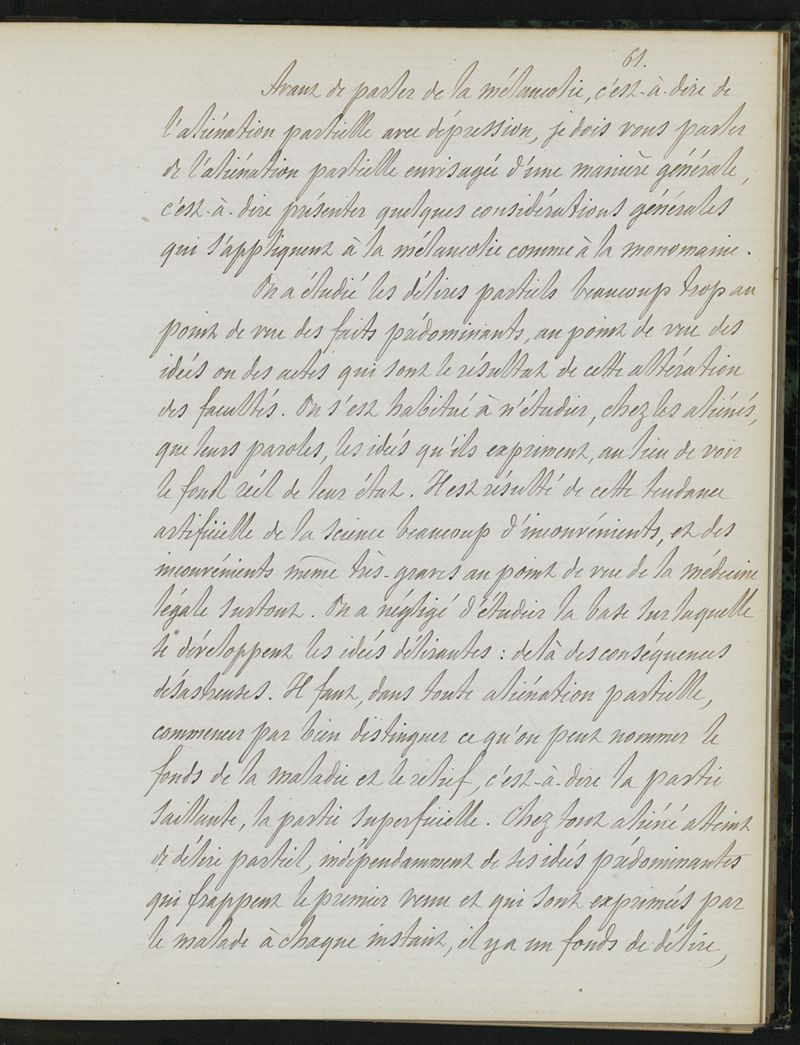 61.
Avant de parler de la mélancolie, c'est-à-dire de
l'aliénation partielle avec dépression, je dois vous parler
de l'aliénation partielle envisagée d'une manière générale,
c'est-à-dire présenter quelques considérations générales
qui s'appliquent à la mélancolie comme à la monomanie.
On a étudié les délires partiels beaucoup trop au
point de vue des faits prédominants, au point de vue des
idées ou des actes qui sont le résultat de cette altération
des facultés. On s'est habitué à n'étudier, chez les aliénés,
que leurs paroles, les idées qu'ils expriment, au lieu de voir
le fond réel de leur état. Il est résulté de cette tendance
artificielle de la science beaucoup d'inconvénients, et des
inconvénients même très-graves au point de vue de la médecine
légale surtout. On a négligé d'étudier la base sur laquelle
se développent les idées délirantes : de là des conséquences
désastreuses. Il faut, dans toute aliénation partielle,
commencer par bien distinguer ce qu'on peut nommer le
fonds de la maladie et le relief, c'est-à-dire la partie
saillante, la partie superficielle. Chez tout aliéné atteint
de délire partiel, indépendamment de ses idées prédominantes
qui frappent le premier venu et qui sont exprimées par
le malade à chaque instant, il y a un fonds de délire,